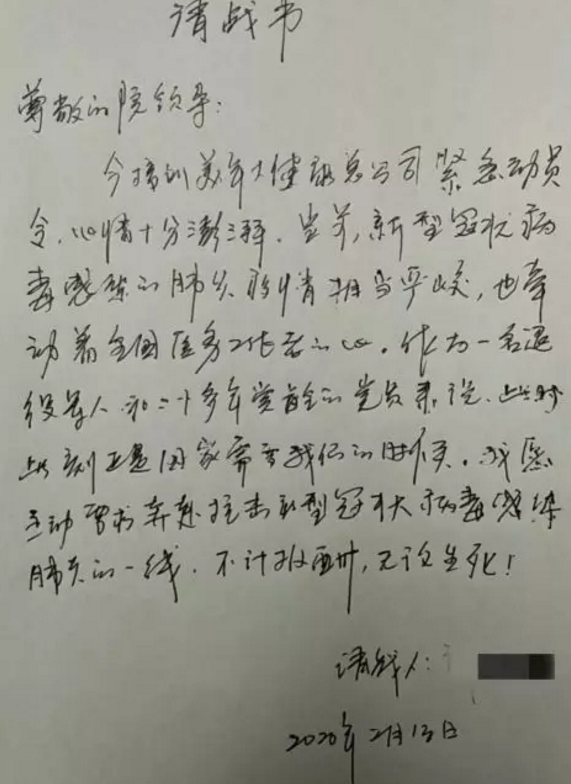 请战书
尊敬的院领导：
今接到美年大健康总公司紧急动员
令，心情十分澎湃。当前，新型冠状病
毒感染的肺炎疫情相当严峻，也牵
动着全国医务工作者的心。作为一名退
役军人和二十多年党龄的党员来说，此时
此刻正是国家需要我们的时候。我愿
主动要求奔赴抗击新型冠状病毒感染
肺炎的一线，不计报酬，无论生死！
请战人：
2020年2月13日